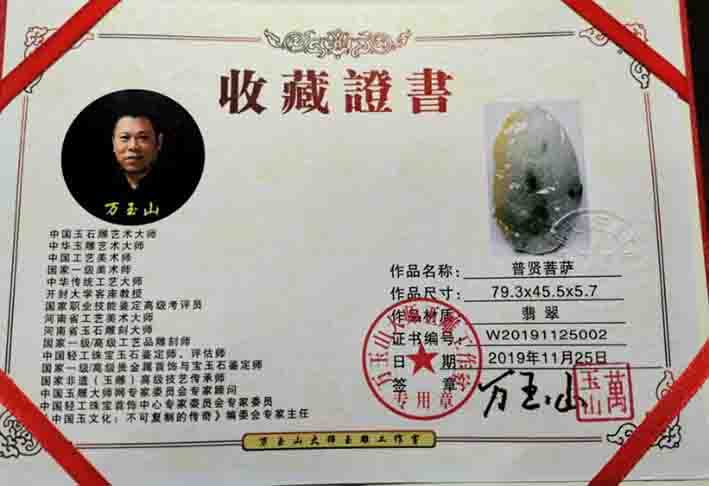 收藏證書
万玉山
中国玉石雕艺术大师
中华玉雕艺术大师
中国工艺美术师
国家一级美术师
中华传统工艺大师
开封大学客座教授
国家职业技能鉴定高级考评员
河南省工艺美术大师
河南省玉石雕刻大师
国家一级/高级工艺品雕刻师
中国轻工珠宝玉石鉴定师、评估师
国家一级/高级贵金属首饰与宝玉石鉴定师
国家非遗（玉雕）高级技艺传承师
中国玉雕大师网专家委员会专家顾问
中国轻工珠宝首饰中心专家委员会专家委员
《中国玉文化：不可复制的传奇》编委会专家主任
作品名称：普贤菩萨
作品尺寸：79.3x45.5x5.7
作品材质：翡翠
证书编号：W20191125002
日期：2019年11月25日
签章：万玉山
萬玉山
万玉山大师玉雕工作室
专用章
万玉山大师玉雕工作室